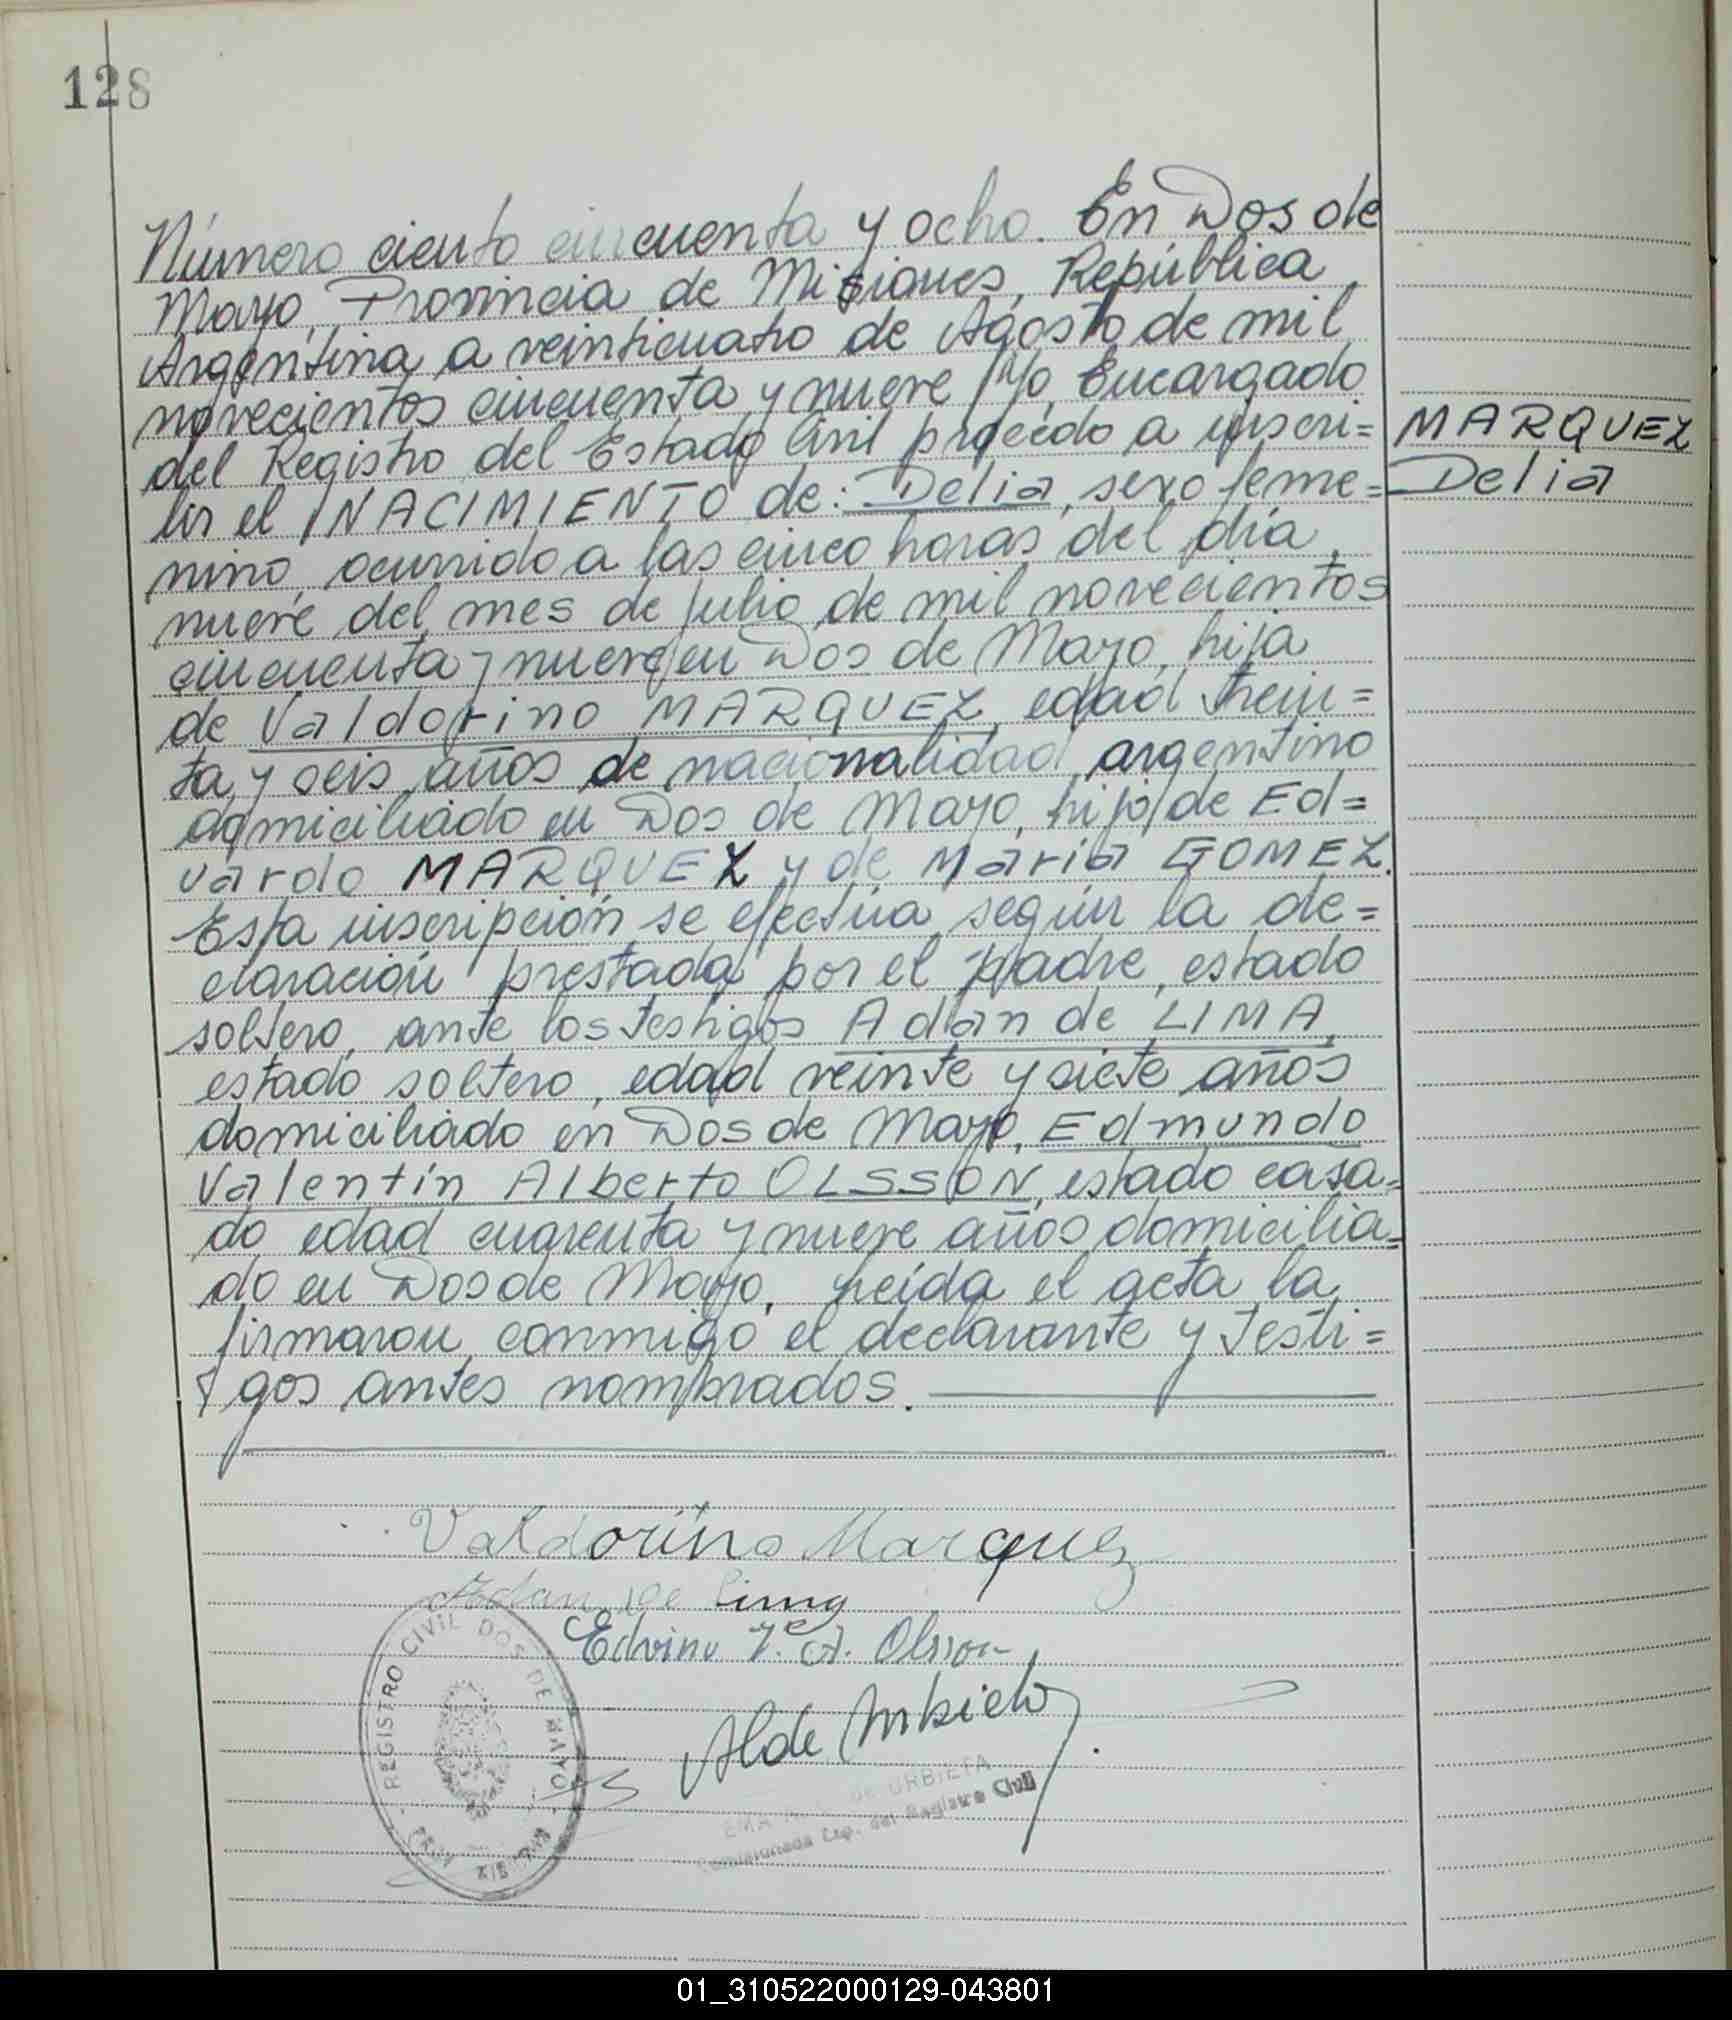 128
Número ciento cincuenta y ocho. En Dos de
Mayo, Provincia de Misiones, República
Argentina a veinticuatro de Agosto de mil
novecientos cincuenta y nueve, Yo, Encargado
del Registro del Estado Civil procedo a inscri=
bir el NACIMIENTO de: Delia, sexo feme=
nino, ocurrido a las cinco horas del día
nueve del mes de Julio de mil novecientos
cincuenta y nueve en Dos de Mayo, hija
de Valdorino MARQUEZ, edad trein=
ta y seis años de nacionalidad argentino
domiciliado en Dos de Mayo, hijo de Ed=
uardo MARQUEZ y de Maria GOMEZ.
Esta inscripción se efectúa según la de=
claración prestada por el padre, estado
soltero, ante los testigos Adán de LIMA,
estado soltero, edad veinte y siete años
domiciliado en Dos de Mayo, Edmundo
Valentín Alberto OLSSON, estado casa=
do edad cuarenta y nueve años domicilia=
do en Dos de Mayo, leída el acta la
firmaron conmigo el declarante y testi=
gos antes nombrados.
MARQUEZ
Delia
Valdorino Marquez
Adan de Lima
V. A. Olsson
REGISTRO CIVIL DOS DE MAYO
DE URBIETA
del Registro Civil
01_310522000129-043801